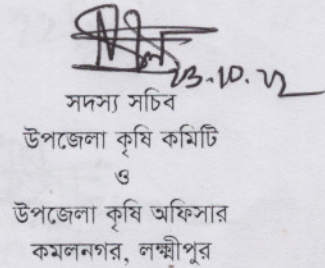 23.10.22
সদস্য সচিব
উপজেলা কৃষি কমিটি
ও
উপজেলা কৃষি অফিসার
কমলনগর, লক্ষ্মীপুর